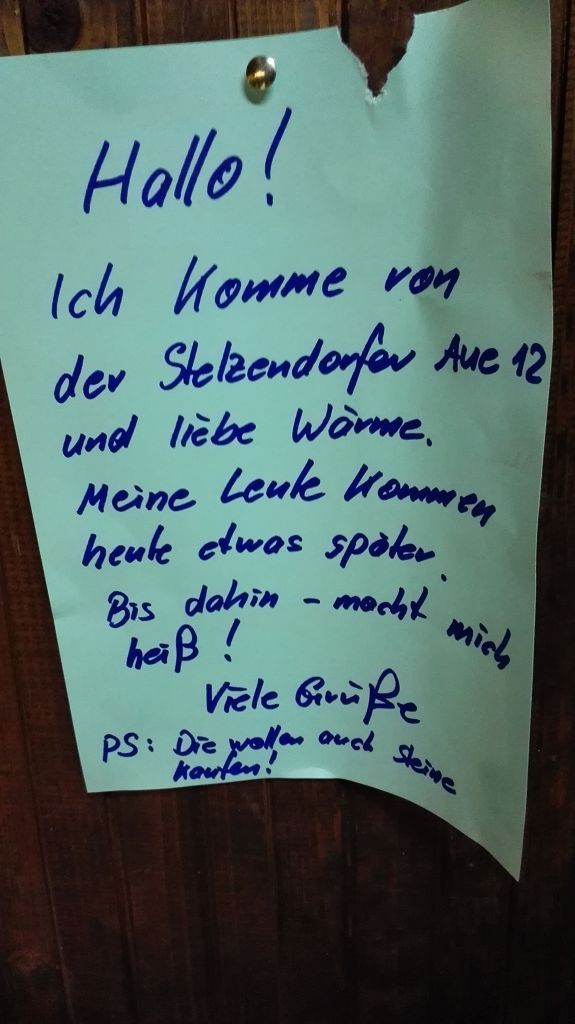 Hallo!
Ich komme von
der Stelzendorfer Aue 12
und liebe Wärme.
Meine Leute kommen
heute etwas später.
Bis dahin - macht mich
heiß!
Viele Grüße
PS: Die wollen auch Steine
kaufen!